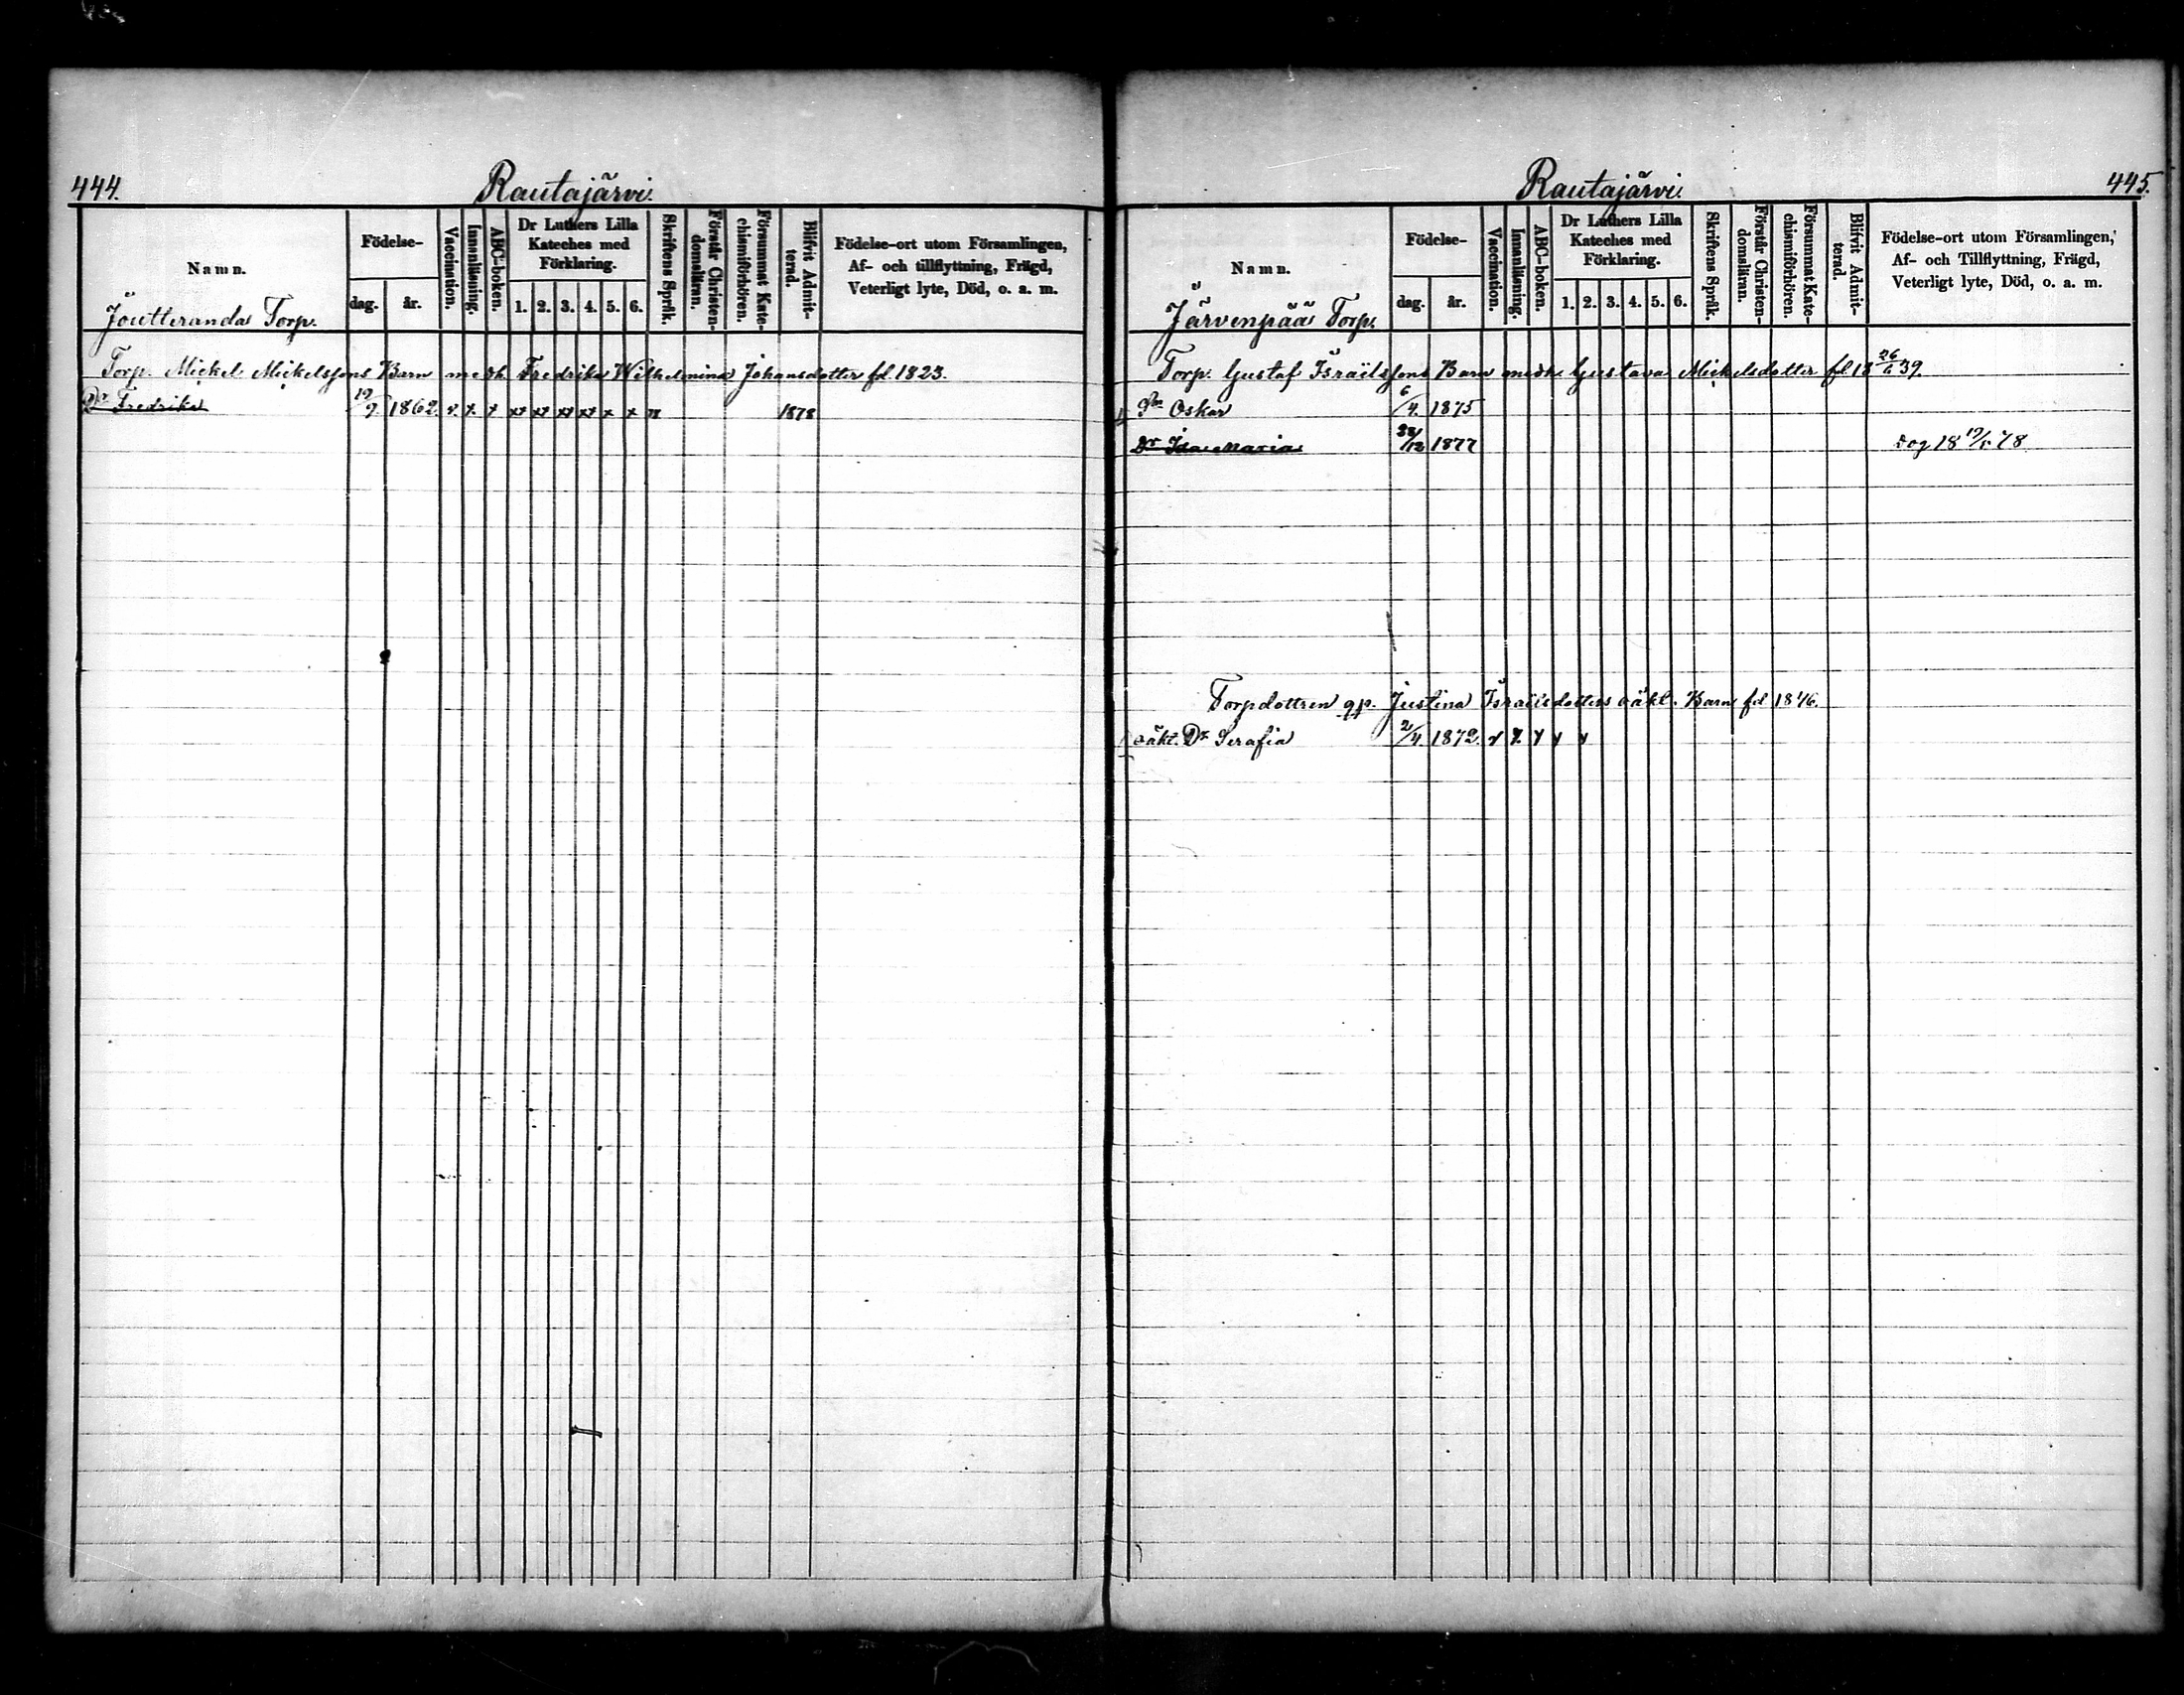 444.
Rautajärvi.
Namn.
Födelse-
dag. år.
Vaccination.
Innanläsning.
ABC-boken.
Dr Luthers Lilla
Kateches med
Förklaring.
1. 2. 3. 4. 5. 6.
Skriftens Språk.
Förstår Christen-
domsläran.
Försummat Kate-
chismiförhören.
Blifvit Admit-
terad.
Födelse-ort utom Församlingen,
Af- och tillflyttning, Frägd,
Veterligt lyte, Död, o. a. m.
Joutteranda Torp.
Torp. Mickel Mickelssons Barn med h. Fredrika Wilhelmina Johansdotter fd. 1823.
Dr Fredrika 1862 1878
445.
Rautajärvi.
Namn.
Födelse-
dag. år.
Vaccination.
Innanläsning.
ABC-boken.
Dr Luthers Lilla
Kateches med
Förklaring.
1. 2. 3. 4. 5. 6.
Skriftens Språk.
Förstår Christen-
domsläran.
Försummat Kate-
chismiförhören.
Blifvit Admit-
terad.
Födelse-ort utom Församlingen,
Af- och Tillflyttning, Frägd,
Veterligt lyte, Död, o. a. m.
Järvenpää Torp.
Torp. Gustaf Israilssons Barn med h. Gustava Mickelsdotter fd 18 26/6 39.
Sn Oskar 6/4. 1875
Dr Ida Maria 28/12 1877 dog 18 19/5 78
Torpdottren qp. Justina Israilsdotters oäkt. Barn fd 1846.
oäkt. Dr Serafia 2/4. 1872.